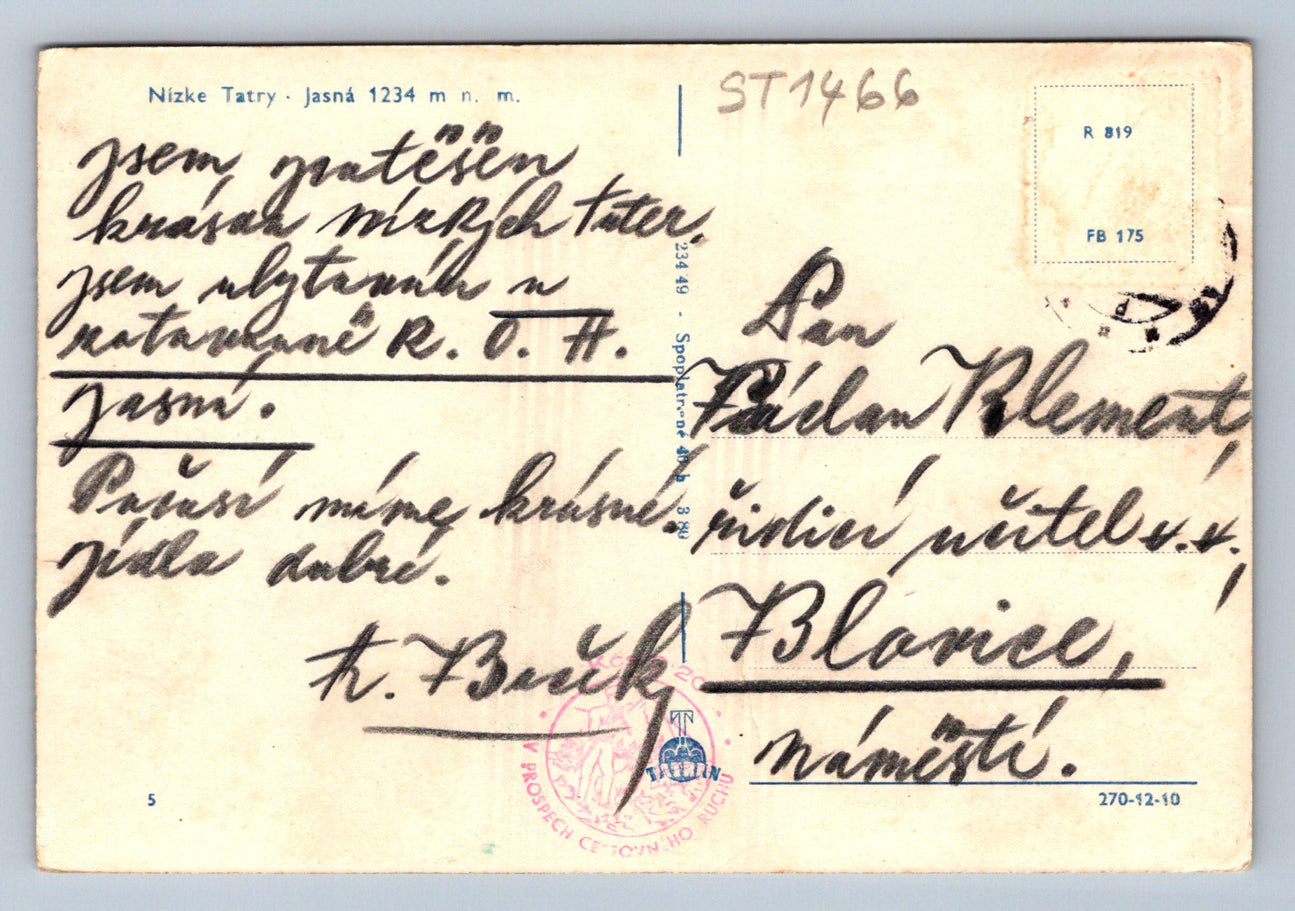 Nízke Tatry · Jasná 1234 m n. m.
ST1466
R 819
FB 175
Jsem potěšen
krásou Nízkých Tater.
Jsem ubytován v
zotavovně R. O. H.
Jasná.
Počasí máme krásné.
Jídla dobré.
234 49 - Spoplatnené 40 h 3 89
Pan
Václav Klement,
řídící učitel v.v.,
Blovice,
náměstí.
V PROSPECH CESTOVNÉHO RUCHU
TATRAN
5
270-12-10